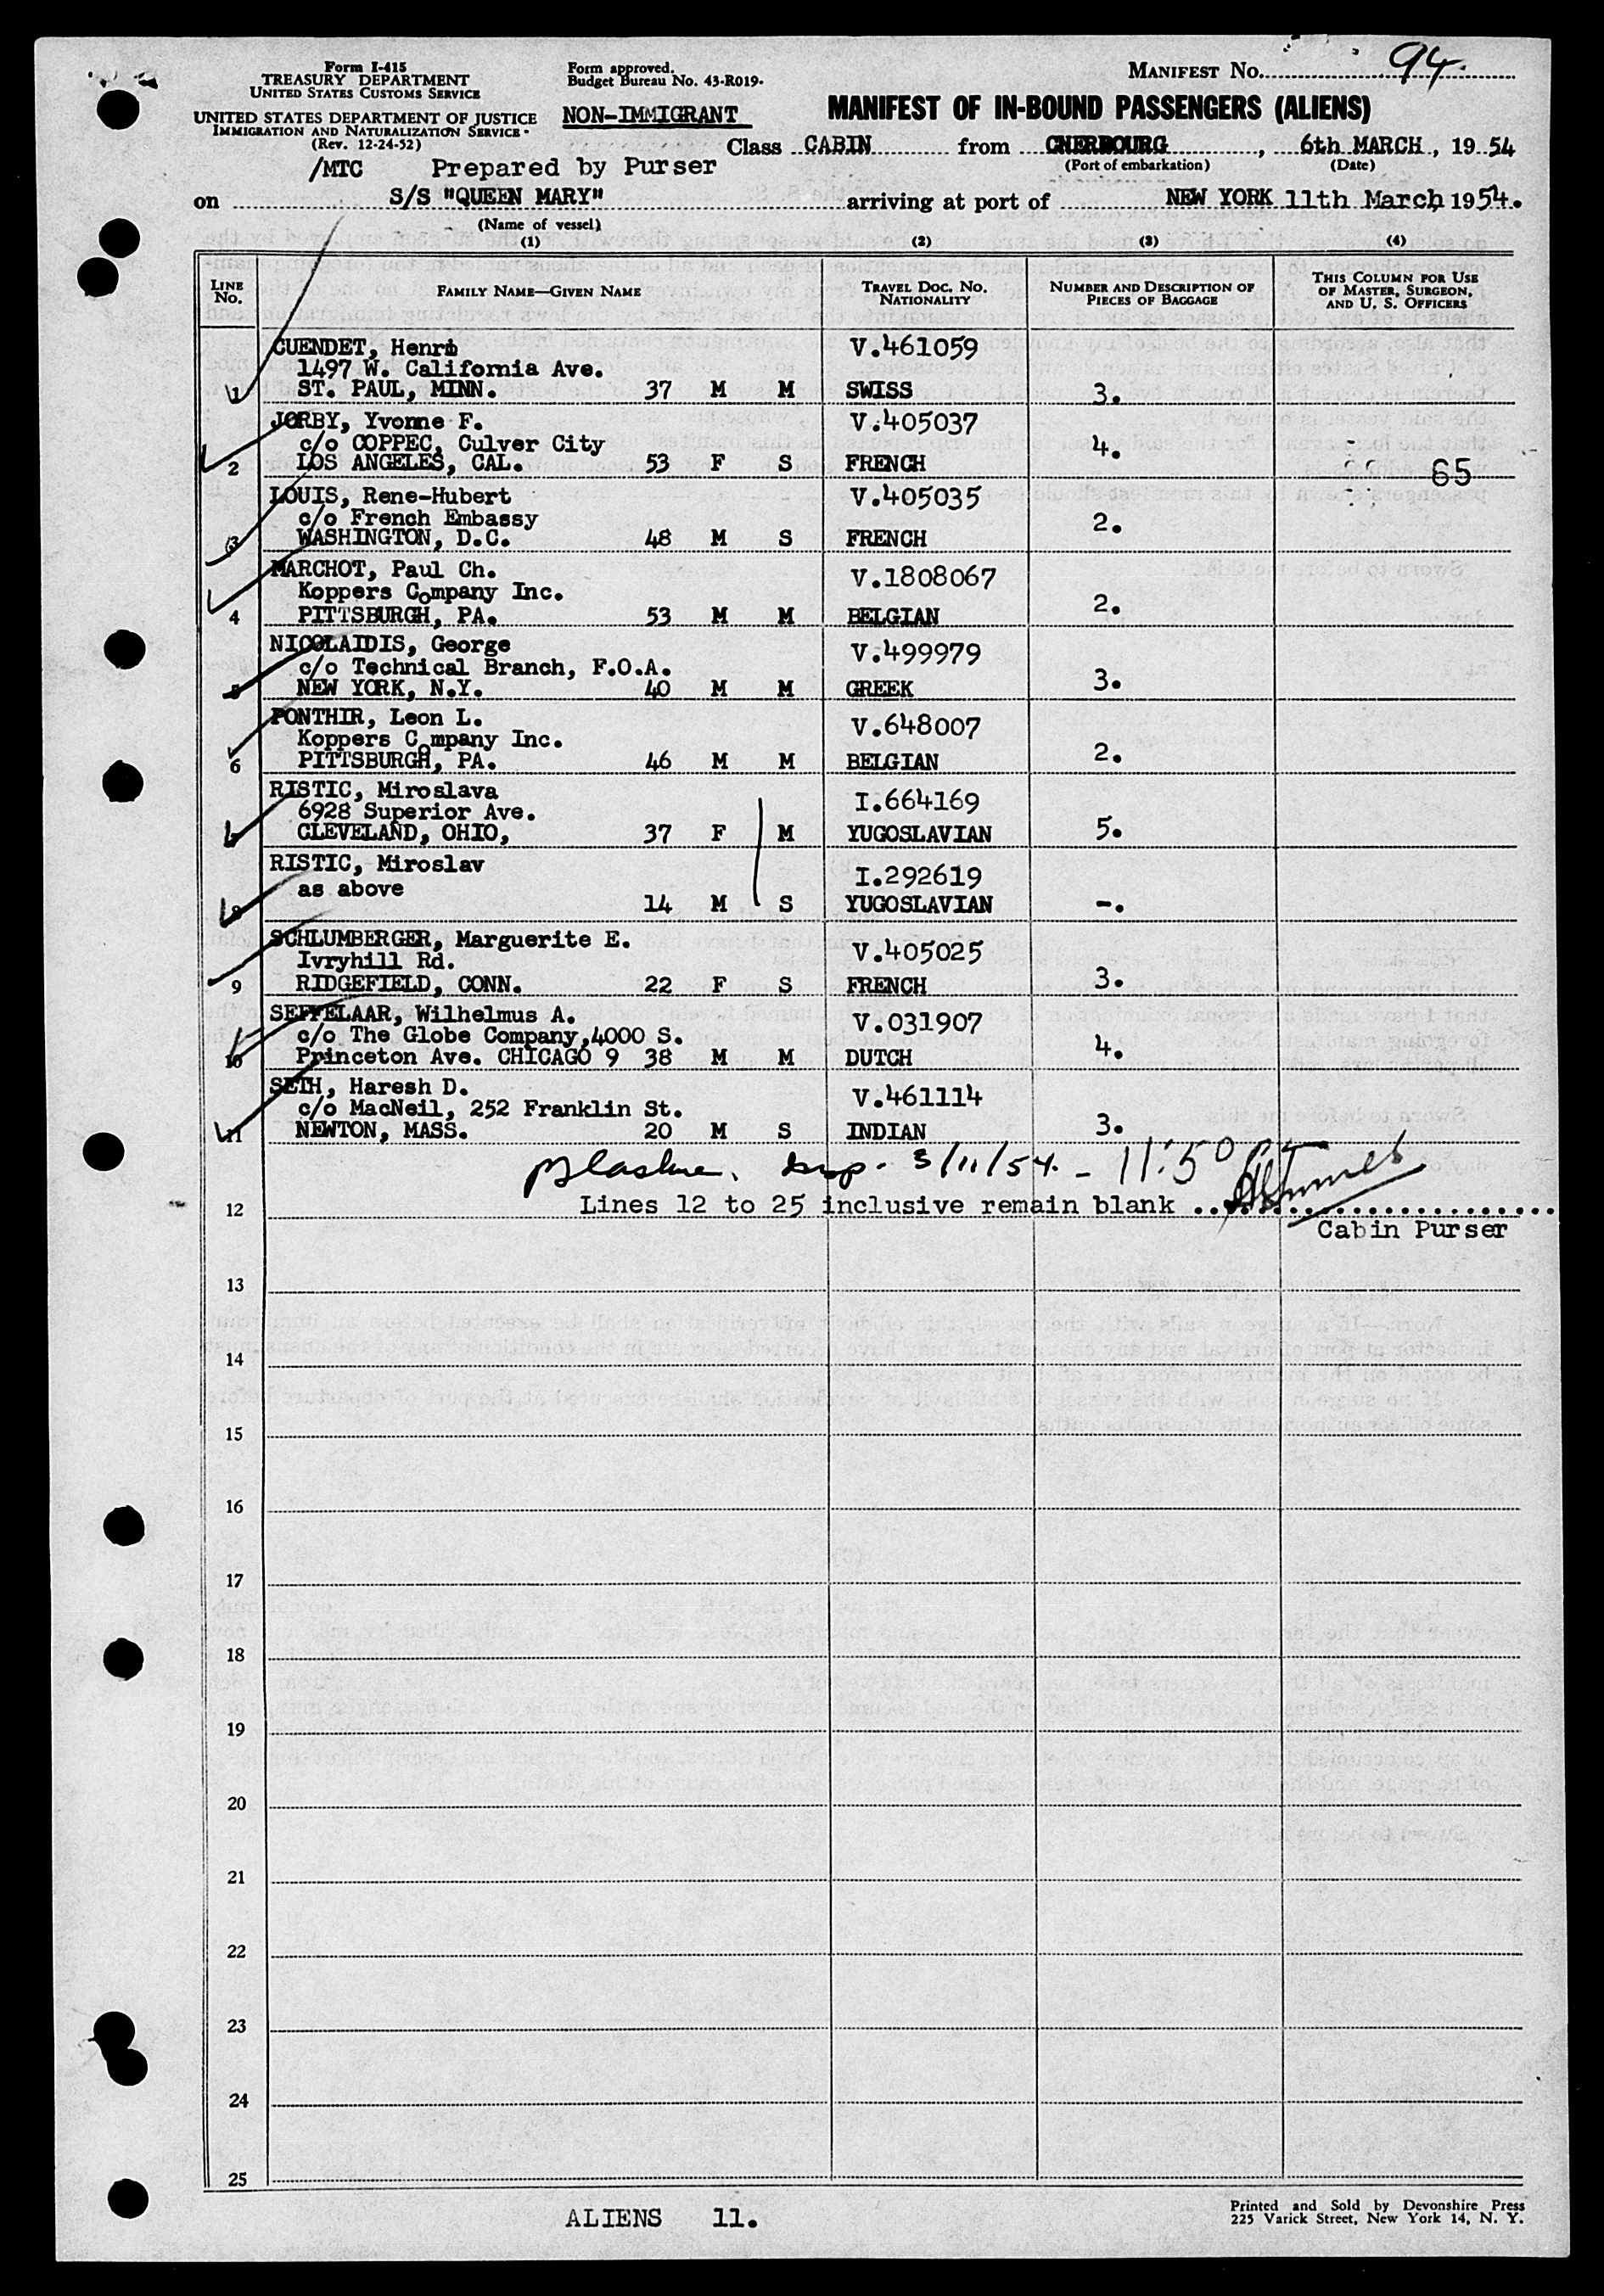 Form I-415
TREASURY DEPARTMENT
UNITED STATES CUSTOMS SERVICE
UNITED STATES DEPARTMENT OF JUSTICE
IMMIGRATION AND NATURALIZATION SERVICE
(Rev. 12-24-52)
Form approved.
Budget Bureau No. 43-R019.
NON-IMMIGRANT
MANIFEST NO. 94.
MANIFEST OF IN-BOUND PASSENGERS (ALIENS)
Class CABIN from CHERBOURG, 6th MARCH, 19 54
(Port of embarkation) (Date)
/MTC Prepared by Purser
on S/S "QUEEN MARY" arriving at port of NEW YORK 11th March, 1954.
(Name of vessel)
(1) (2) (3) (4)
LINE NO. FAMILY NAME—GIVEN NAME TRAVEL DOC. NO. NATIONALITY NUMBER AND DESCRIPTION OF PIECES OF BAGGAGE THIS COLUMN FOR USE OF MASTER, SURGEON, AND U. S. OFFICERS
CUENDET, Henri V.461059
1497 W. California Ave.
1 ST. PAUL, MINN. 37 M M SWISS 3.
JORBY, Yvonne F. V.405037
c/o COPPEC, Culver City 4.
2 LOS ANGELES, CAL. 53 F S FRENCH 65
LOUIS, Rene-Hubert V.405035
c/o French Embassy 2.
3 WASHINGTON, D.C. 48 M S FRENCH
MARCHOT, Paul Ch. V.1808067
Koppers Company Inc. 2.
4 PITTSBURGH, PA. 53 M M BELGIAN
NICOLAIDIS, George V.499979
c/o Technical Branch, F.O.A. 3.
5 NEW YORK, N.Y. 40 M M GREEK
PONTHIR, Leon L. V.648007
Koppers Company Inc. 2.
6 PITTSBURGH, PA. 46 M M BELGIAN
RISTIC, Miroslava I.664169
6928 Superior Ave. 5.
7 CLEVELAND, OHIO, 37 F M YUGOSLAVIAN
RISTIC, Miroslav I.292619
as above
8 14 M S YUGOSLAVIAN -.
SCHLUMBERGER, Marguerite E. V.405025
Ivryhill Rd. 3.
9 RIDGEFIELD, CONN. 22 F S FRENCH
SEFFELAAR, Wilhelmus A. V.031907
c/o The Globe Company,4000 S. 4.
10 Princeton Ave. CHICAGO 9 38 M M DUTCH
SETH, Haresh D. V.461114
c/o MacNeil, 252 Franklin St. 3.
11 NEWTON, MASS. 20 M S INDIAN
Insp. 3/11/54. - 11:50
12 Lines 12 to 25 inclusive remain blank ........................
Cabin Purser
13
14
15
16
17
18
19
20
21
22
23
24
25
ALIENS 11.
Printed and Sold by Devonshire Press
225 Varick Street, New York 14, N. Y.